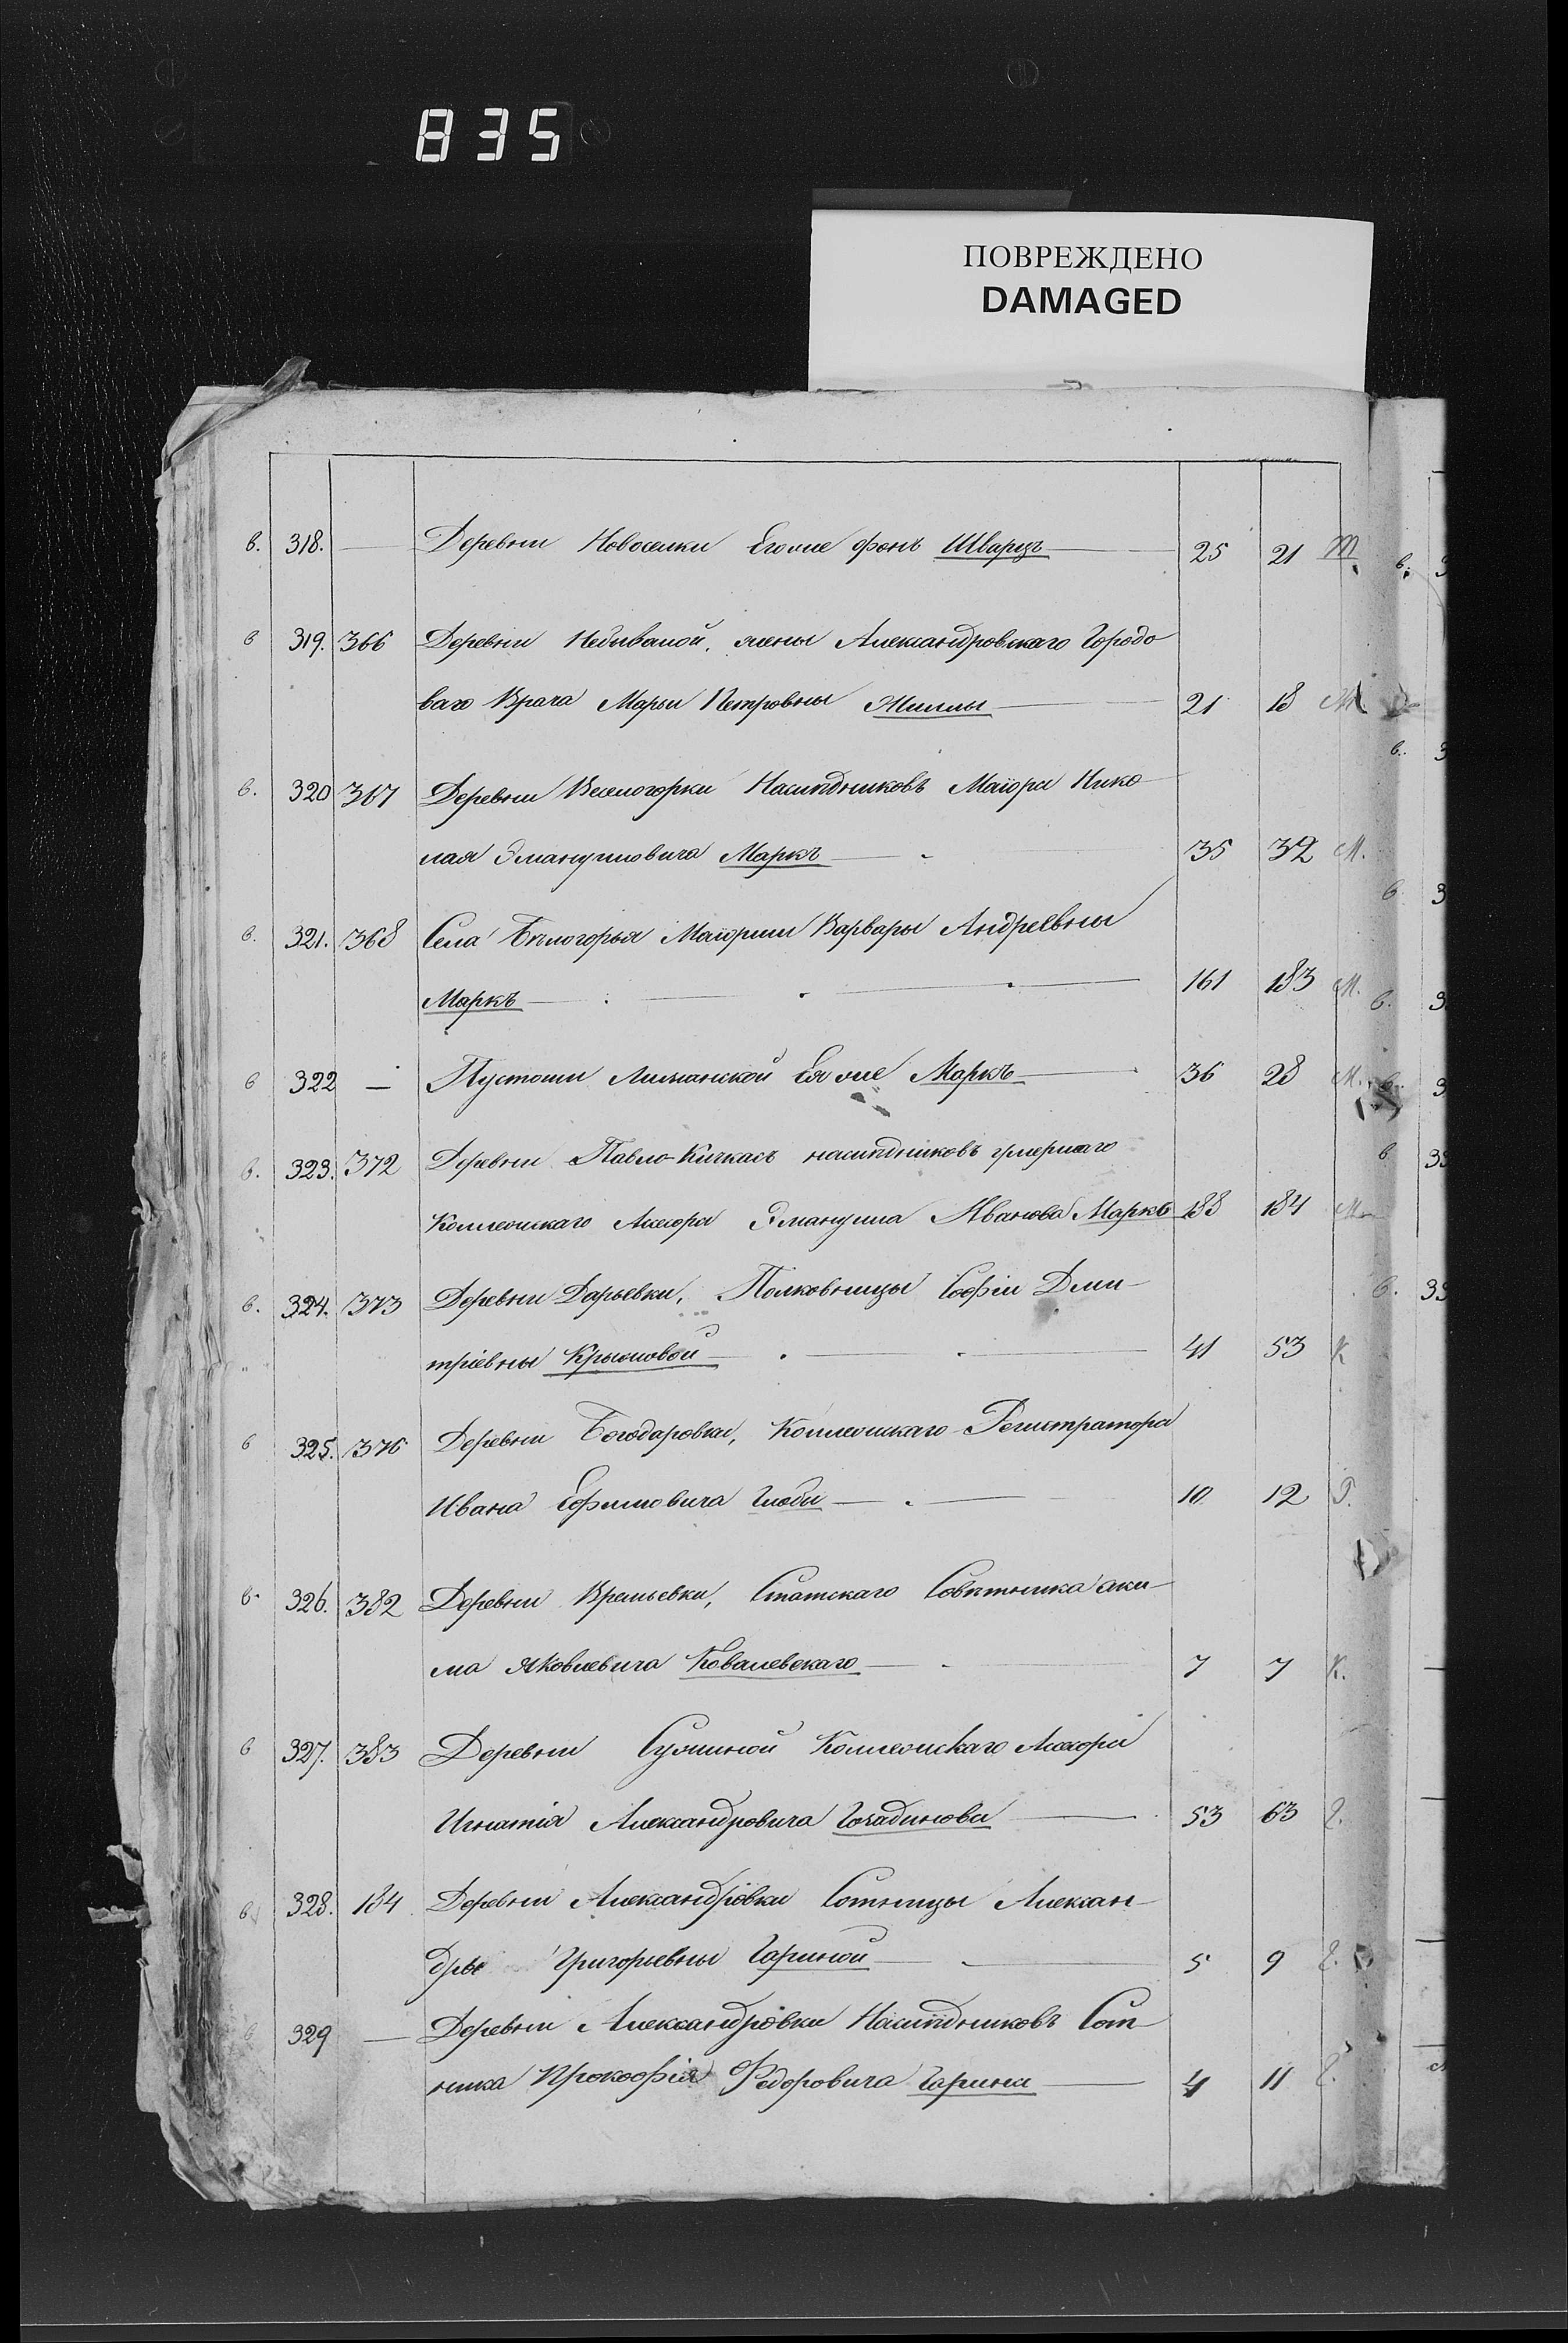 835
ПОВРЕЖДЕНО
DAMAGED
в. 318. — Деревни Новоселки Его же фонъ Шварцъ 25 21 Ш
в 319. 366 Деревни Небывалой, жены Александровскаго Городо
ваго Врача Марьи Петровны 21 18
в. 320 367 Деревни Веселогорки Наслѣдниковъ Маіора Нико
лая Эмануиловича Маркъ 35 32 М.
в. 321. 368 Села Бѣлогорья Маіорши Варвары Андреевны
Маркъ 161 183 М.
в 322 — Пустоши Лишанской Ея же Маркъ 36 28 М.
в. 323. 372 Деревни Павло-Кичкасъ наслѣдниковъ умершаго
Коллежскаго Ассесора Эмануила Иванова Маркъ 188 184 М
в. 324. 373 Деревни Дарьевки, Полковницы Софіи Дми-
тріевны Крыжовой 41 53 К
в 325. 376 Деревни Богодаровки, Коллежскаго Регистратора
Ивана Ефимовича Глоби 10 12 Г.
в. 326. 382 Деревни Времьевки, Статскаго Совѣтника аки-
ма Яковлевича Ковалевскаго 7 7 К.
в 327. 383 Деревни Сушиной Коллежскаго Ассесора
Игнатія Александровича Гочадинова 53 63 Г.
в 328. 184 Деревни Александровки Сотницы Алексан-
дры Григорьевны Гариной 5 9 Г.
329 — Деревни Александровки Наслѣдниковъ Сот-
ника Прокофія Федоровича Гарина 4 11 Г.